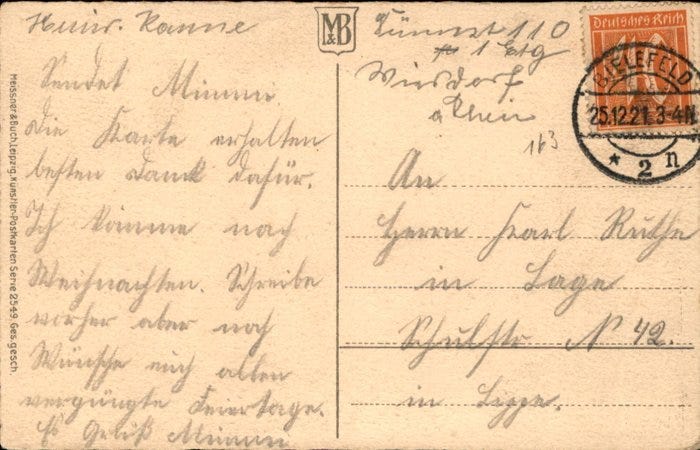 Heinr. Kanne
Sendet Minna
Die Karte erhalten
besten Dank dafür.
Ich komme nach
Weihnachten. Schreibe
vorher aber noch
Wünsche euch allen
vergnügte Feiertage.
Es Grüß Minna
Meissner & Buch, Leipzig. Künstler-Postkarten Serie 2549. Ges. gesch.
M&B
110
1 Etg
Wiesdorf
a Rhein
163
Deutsches Reich
BIELEFELD
25.12.21. 3-4N.
* 2 n
An
Herrn Karl Ruthe
in Lage
Schulstr N° 42.
in Lippe.